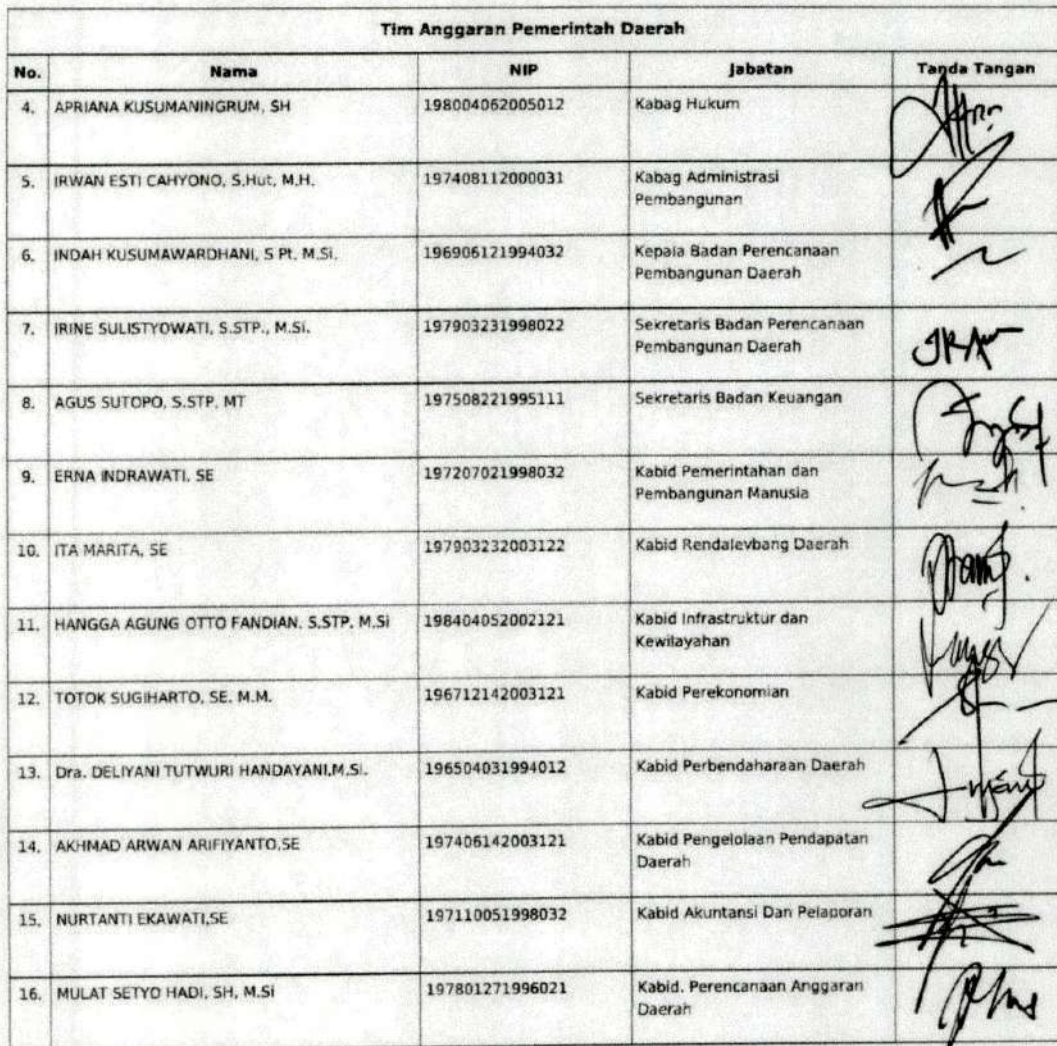 Tim Anggaran Pemerintah Daerah
No. Nama NIP Jabatan Tanda Tangan
4. APRIANA KUSUMANINGRUM, SH 198004062005012 Kabag Hukum
5. IRWAN ESTI CAHYONO, S.Hut, M.H. 197408112000031 Kabag Administrasi
Pembangunan
6. INDAH KUSUMAWARDHANI, S Pt, M.Si. 196906121994032 Kepala Badan Perencanaan
Pembangunan Daerah
7. IRINE SULISTYOWATI, S.STP., M.Si. 197903231998022 Sekretaris Badan Perencanaan
Pembangunan Daerah
8. AGUS SUTOPO, S.STP, MT 197508221995111 Sekretaris Badan Keuangan
9. ERNA INDRAWATI, SE 197207021998032 Kabid Pemerintahan dan
Pembangunan Manusia
10. ITA MARITA, SE 197903232003122 Kabid Rendalevbang Daerah
11. HANGGA AGUNG OTTO FANDIAN, S.STP, M.Si 198404052002121 Kabid Infrastruktur dan
Kewilayahan
12. TOTOK SUGIHARTO, SE. M.M. 196712142003121 Kabid Perekonomian
13. Dra. DELIYANI TUTWURI HANDAYANI,M.Si. 196504031994012 Kabid Perbendaharaan Daerah
14. AKHMAD ARWAN ARIFIYANTO,SE 197406142003121 Kabid Pengelolaan Pendapatan
Daerah
15. NURTANTI EKAWATI,SE 197110051998032 Kabid Akuntansi Dan Pelaporan
16. MULAT SETYO HADI, SH, M.Si 197801271996021 Kabid. Perencanaan Anggaran
Daerah